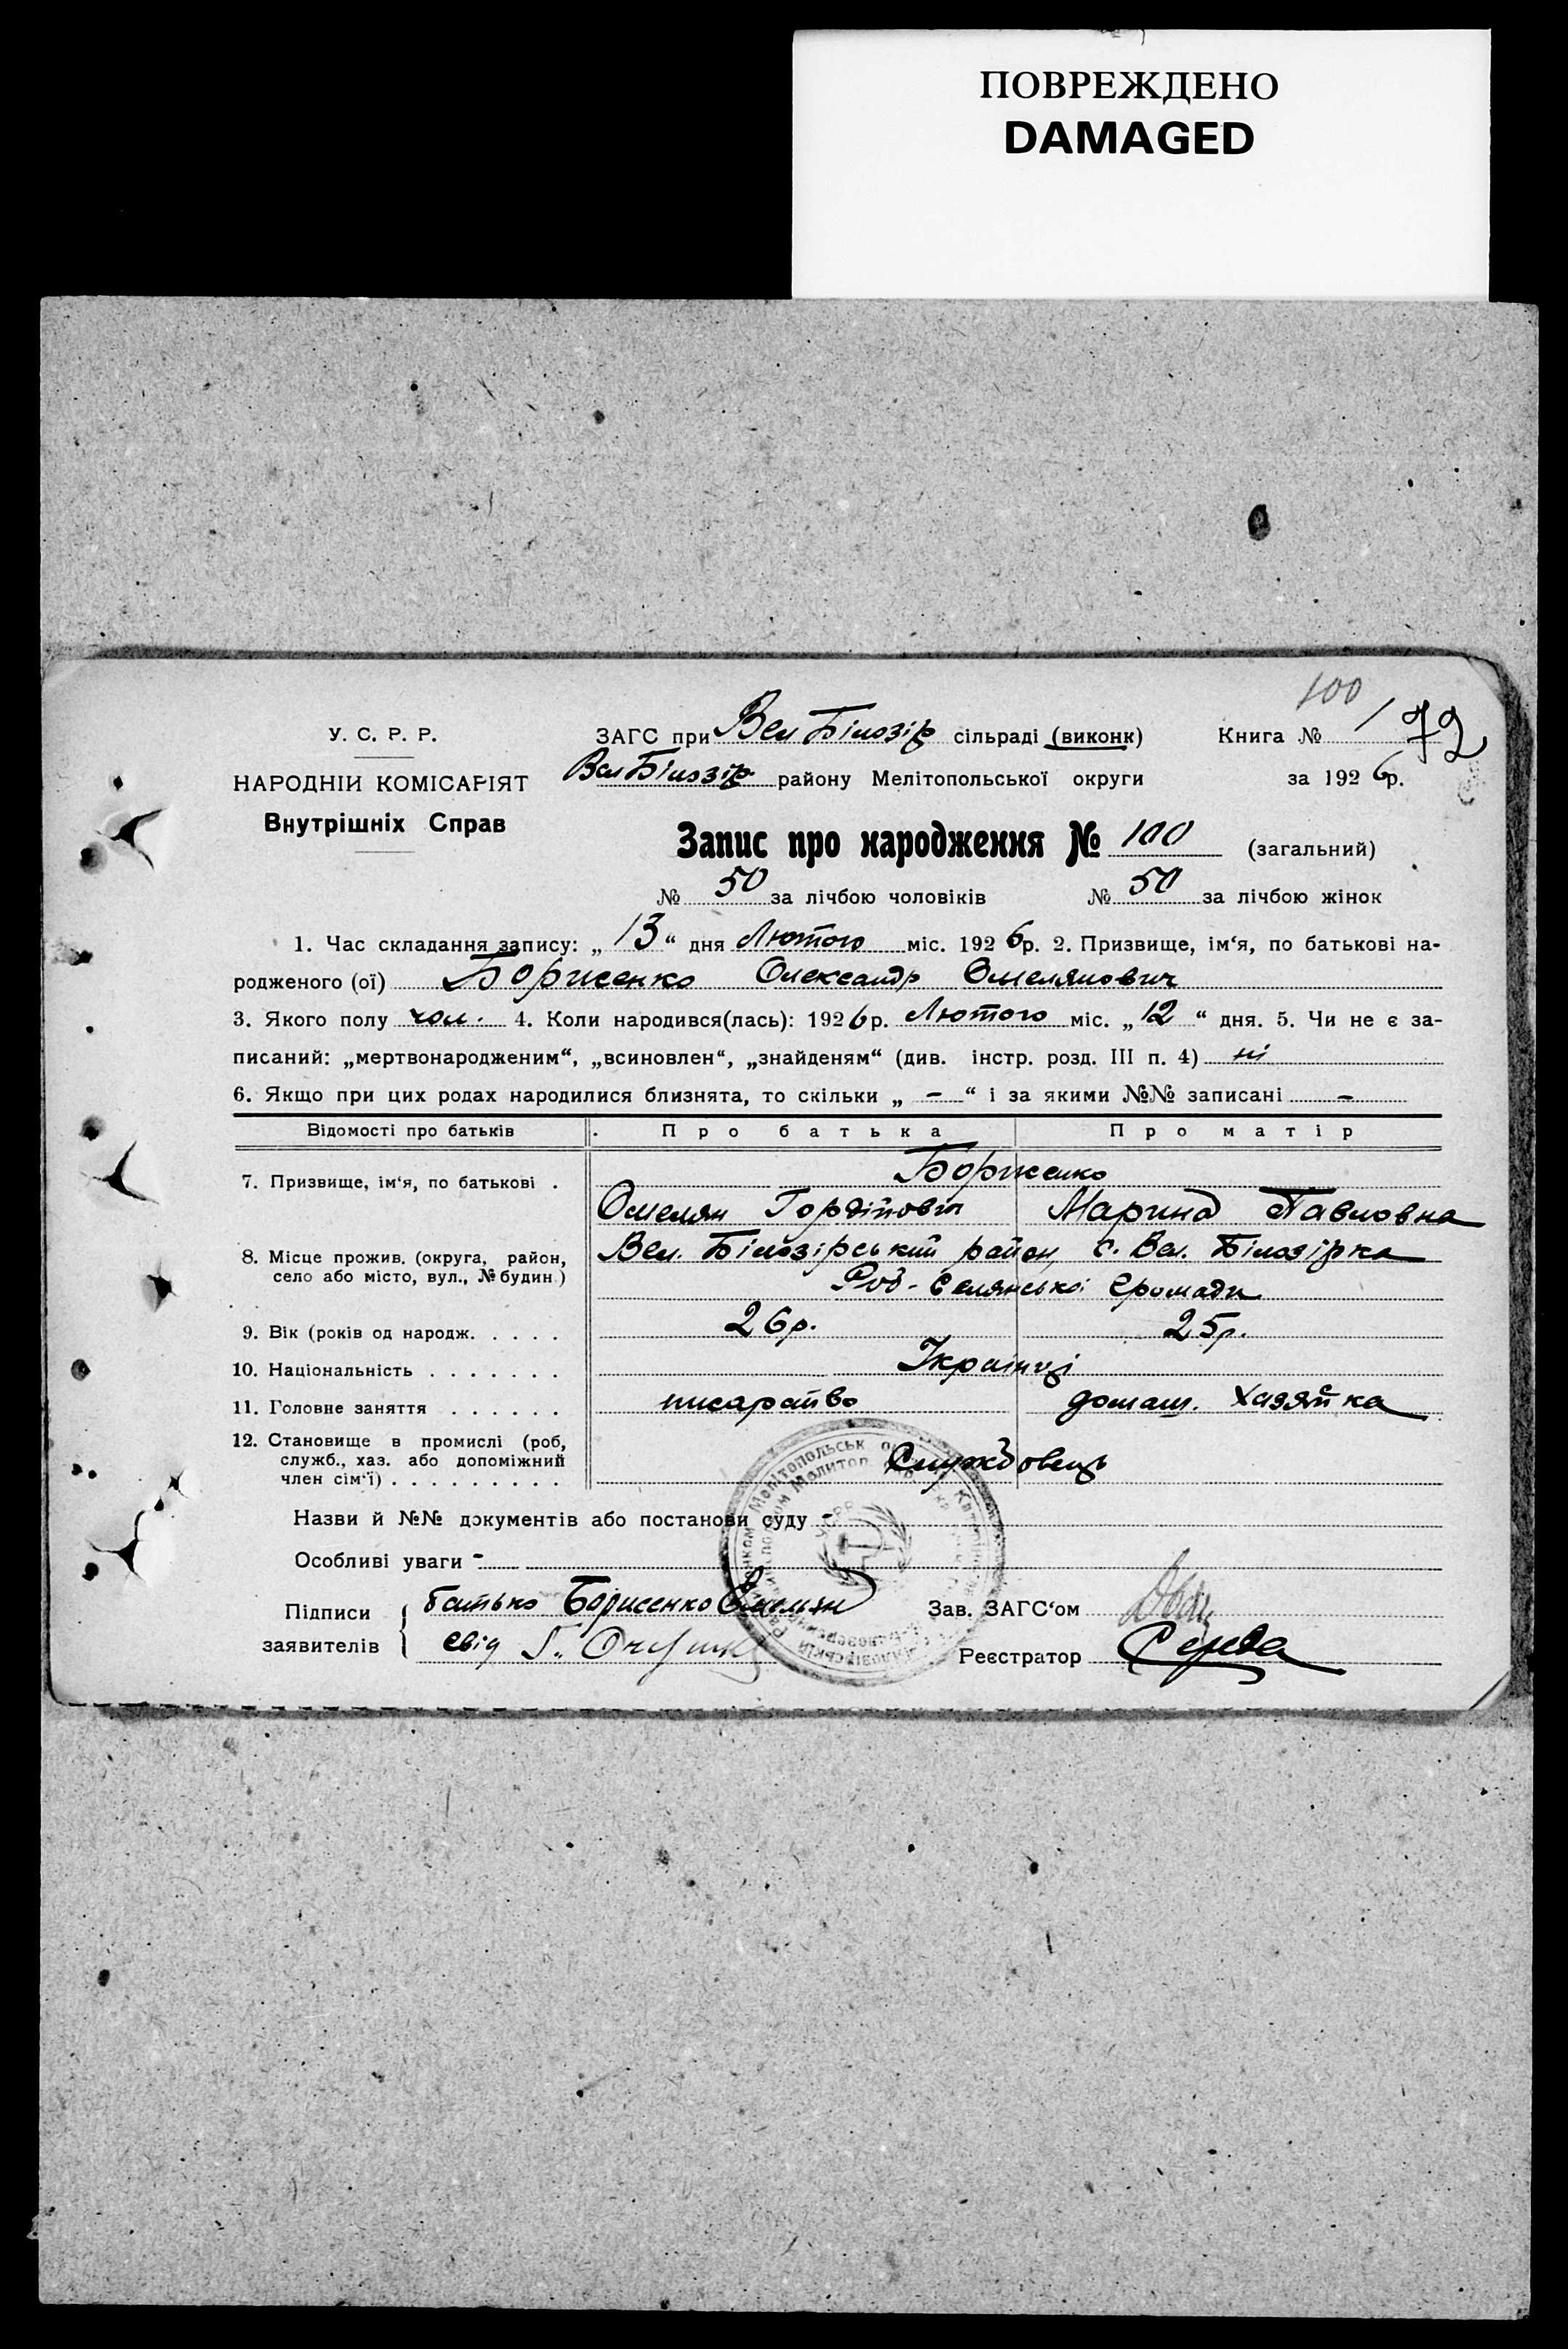 ПОВРЕЖДЕНО
DAMAGED
100
У. С. Р. Р.
НАРОДНІЙ КОМІСАРІЯТ
Внутрішніх Справ
ЗАГС при Вел Білозір сільраді (виконк)
Книга № 1 72
Вел Білозір району Мелітопольської округи
за 1926 р.
Запис про народження № 100 (загальний)
№ 50 за лічбою чоловіків № 50 за лічбою жінок
1. Час складання запису: „13“ дня Лютого міс. 1926р. 2. Призвище, ім‘я, по батькові на-
родженого (ої) Борисенко Олександр Омелянович
3. Якого полу чол. 4. Коли народився(лась): 1926р. Лютого міс. „12“ дня. 5. Чи не є за-
писаний: „мертвонародженим“, „всиновлен“, „знайденям“ (див. інстр. розд. III п. 4) ні
6. Якщо при цих родах народилися близнята, то скільки „ – “ і за якими №№ записані –
Відомості про батьків Про батька Про матір
7. Призвище, ім‘я, по батькові . Борисенко
Омелян Гордійович Марина Павловна
8. Місце прожив. (округа, район, село або місто, вул., № будин.) Вел. Білозірський район, с. Вел. Білозірка
Род- Селянської Громади
9. Вік (років од народж. . . . . 26р. 25р.
10. Національність . . . . . . . Українці
11. Головне заняття . . . . . . писарство домаш. хазяйка
12. Становище в промислі (роб, служб., хаз. або допоміжний член сім‘ї) . . . . . . . . . Службовець
Назви й №№ документів або постанови суду -
Особливі уваги -
Підписи заявителів
батько Борисенко Омелян
свід Г.
Зав. ЗАГС‘ом
Реєстратор Середа
УСРР